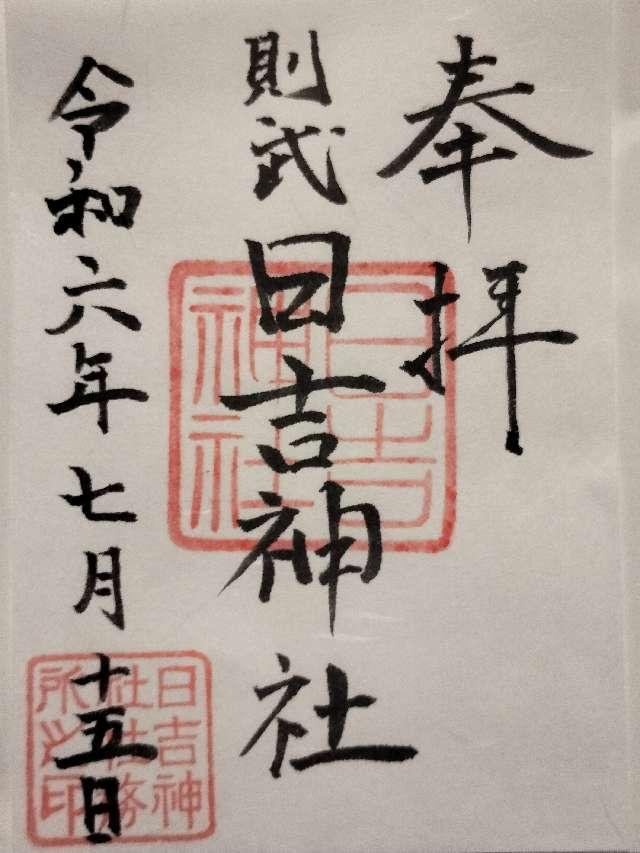 奉拝
則武
日吉神社
日吉神社
令和六年七月十五日
日吉神
社社務
所之印